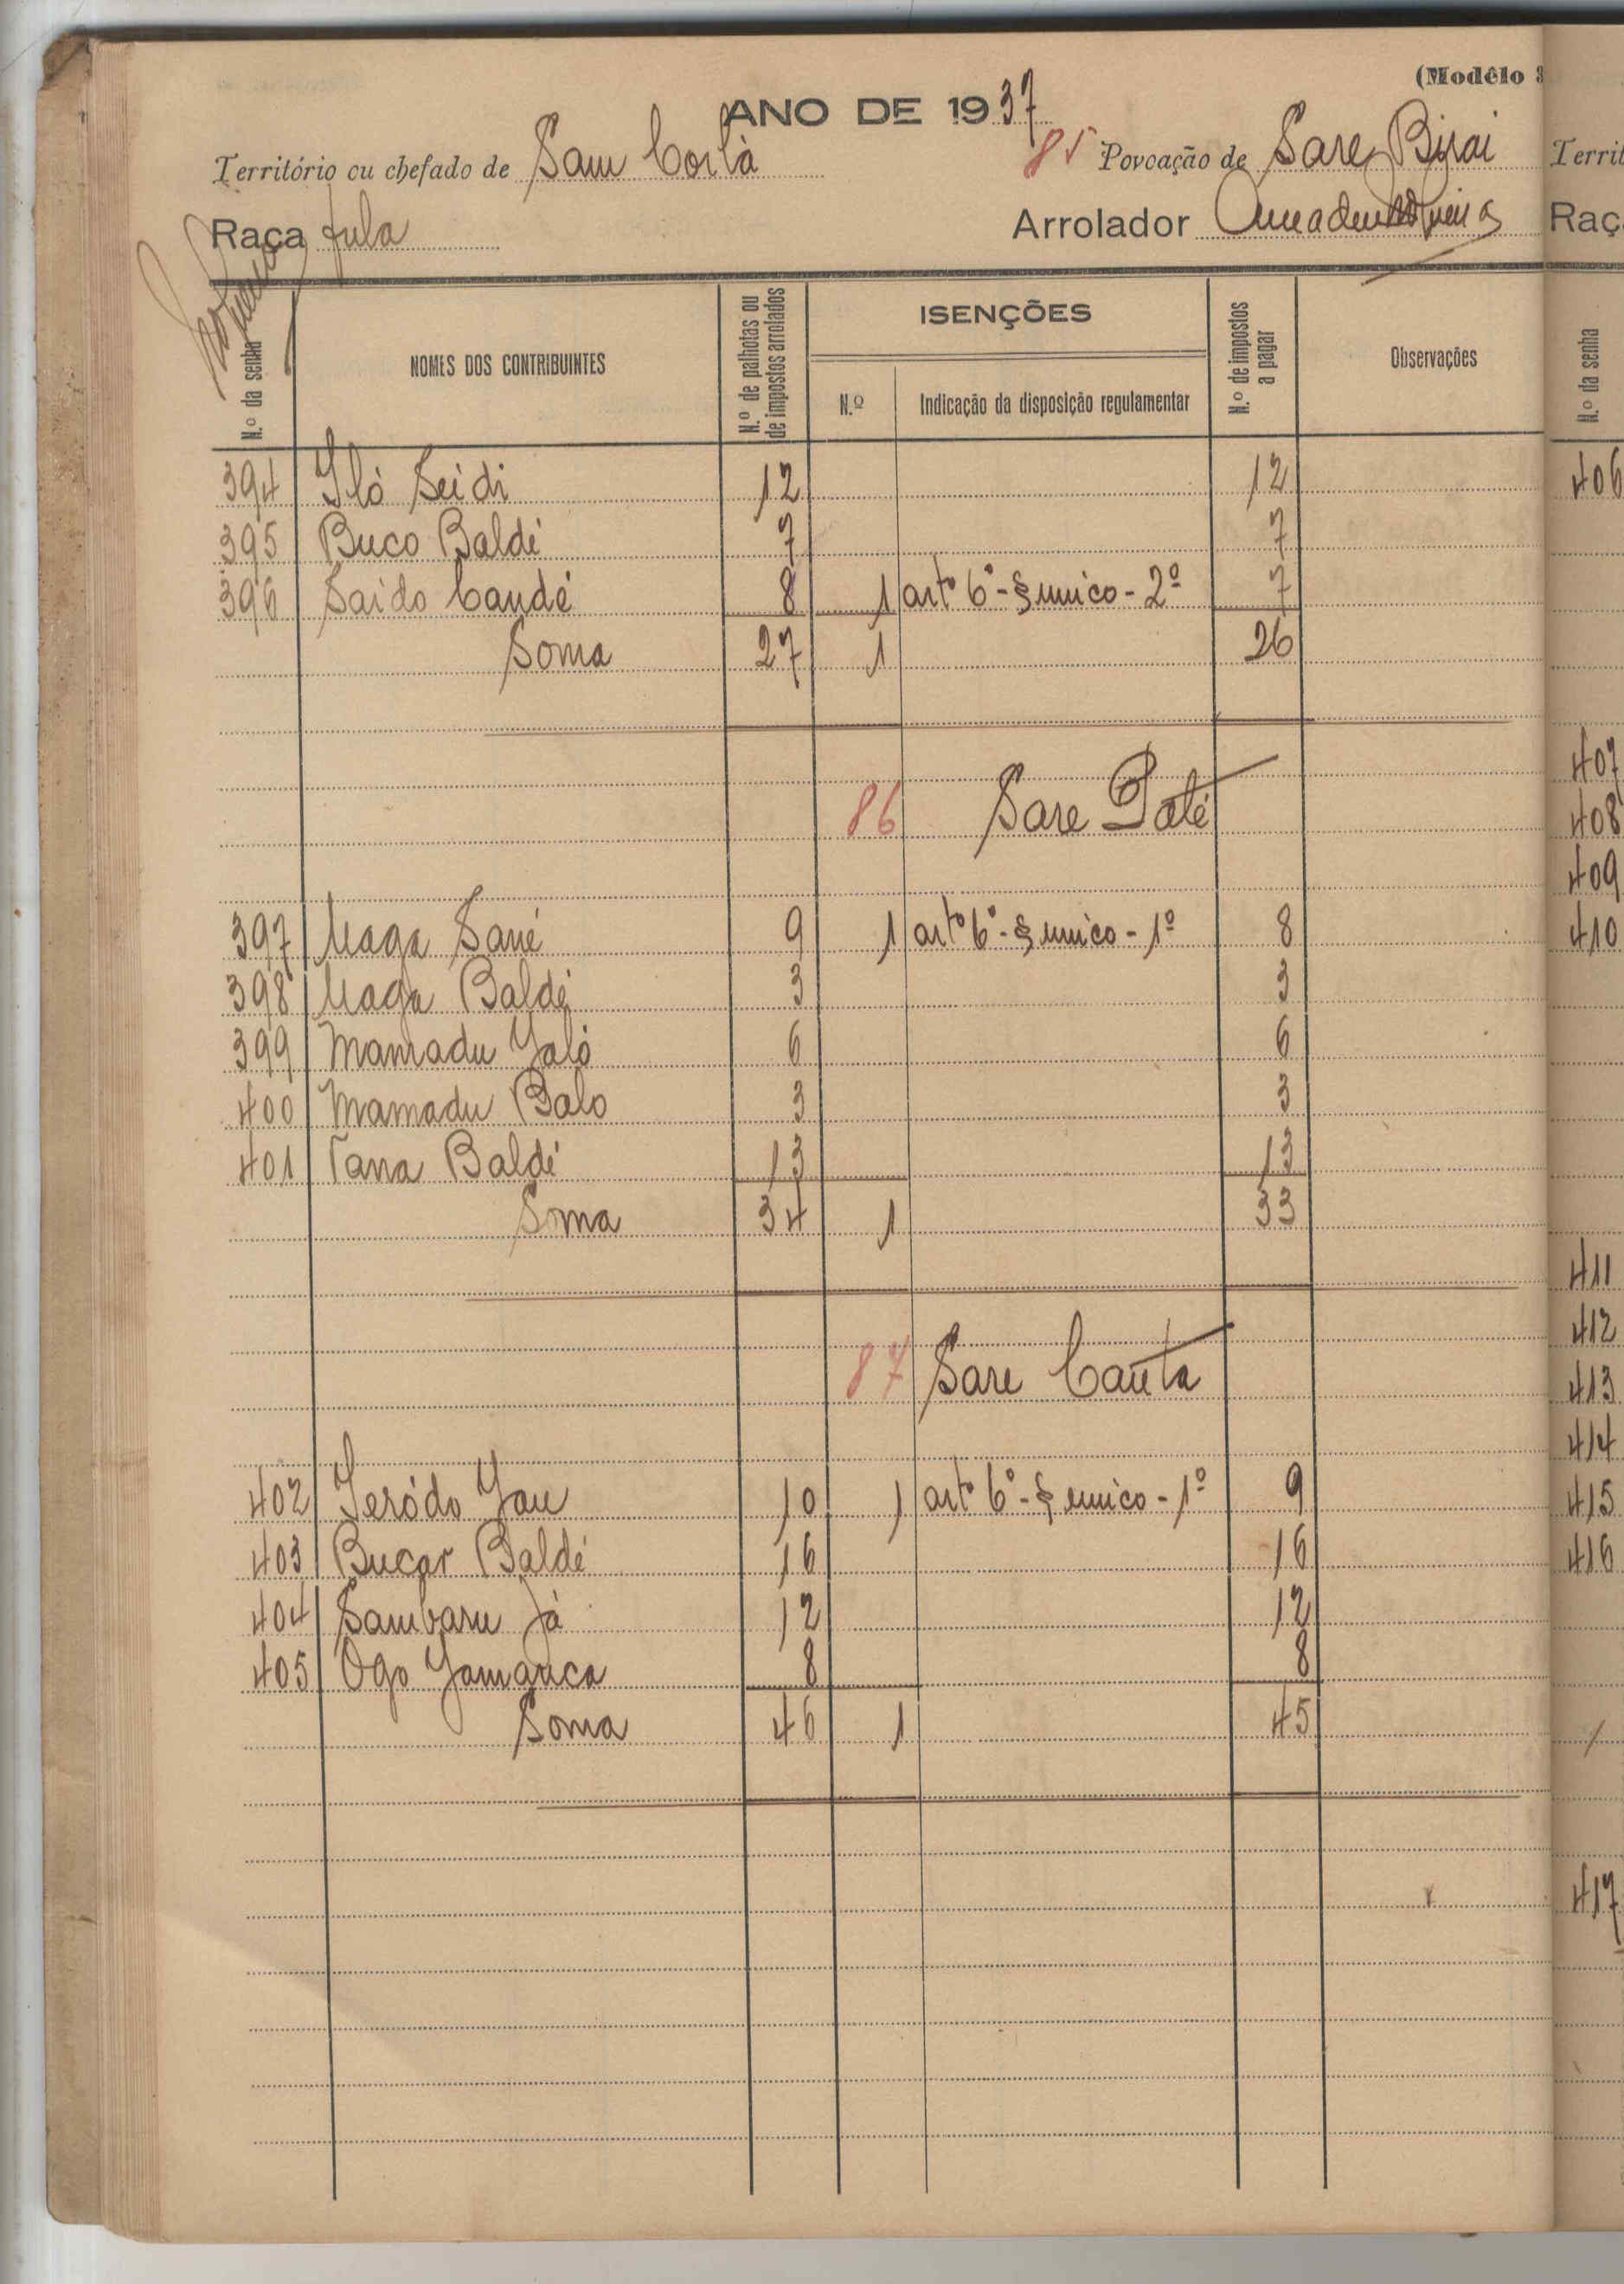 (Modêlo 3
ANO DE 1937
Território ou chefado de Sam Corlà 85 Povoação de Sare Birai
Raça fula Arrolador
N.º da senha NOMES DOS CONTRIBUINTES N.º de palhotas ou de impostos arrolados ISENÇÕES N.º Indicação da disposição regulamentar N.º de impostos a pagar Observações
394 Iló Seidi 12 12
395 Buco Baldé 7 7
396 Saido Candé 8 1 artº 6º - § unico - 2º 7
Soma 27 1 26
86 Sare Paté
397 Maga Sané 9 1 artº 6º - § unico - 1º 8
398 Maga Baldé 3 3
399 Mamadu Jaló 6 6
400 Mamadu Balo 3 3
401 Tana Baldé 13 13
Soma 34 1 33
87 Sare Canta
402 Jeródo Jau 10 1 artº 6º - § unico - 1º 9
403 Bucar Baldé 16 16
404 Sambaru Já 12 12
405 Ogo Jamanca 8 8
Soma 46 1 45
Territ
Raça
N.º da senha
406
407
408
409
410
411
412
413
414
415
416
417